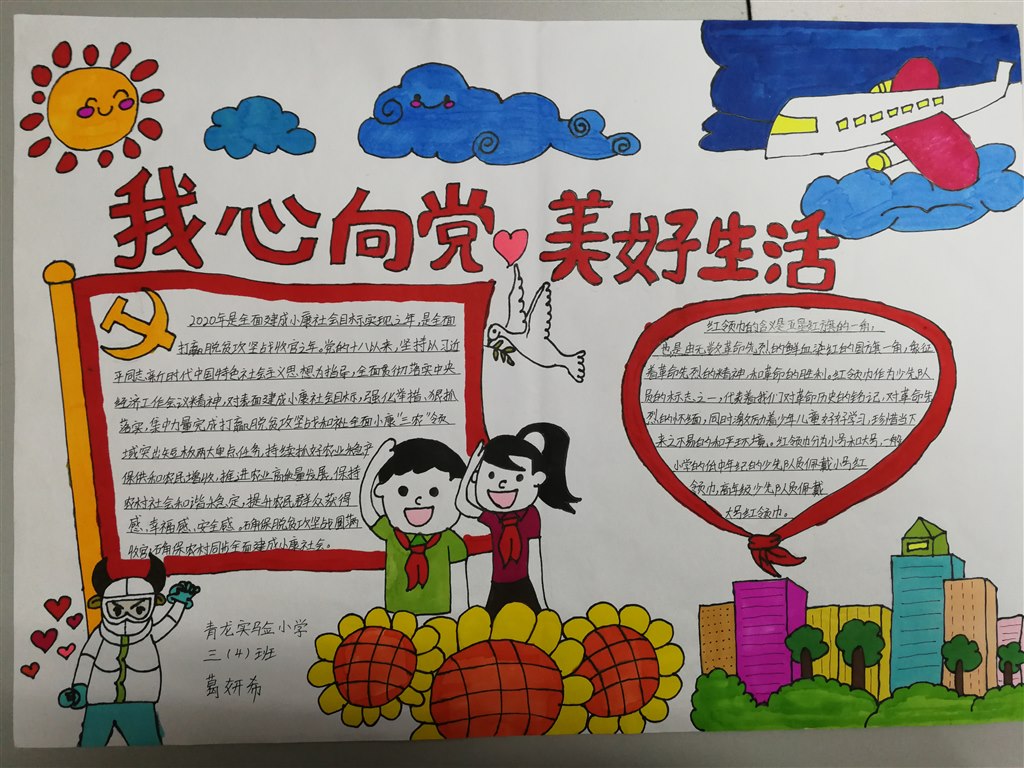 我心向党 美好生活
2020年是全面建成小康社会目标实现之年,是全面
打赢脱贫攻坚战收官之年。党的十八以来,坚持以习近
平同志新时代中国特色社会主义思想为指导,全面贯彻落实中央
经济工作会议精神,对表面建成小康社会目标,强化举措、狠抓
落实,集中力量完成打赢脱贫攻坚战和补上全面小康“三农”领
域突出短板两大重点任务,持续抓好农业稳产
保供和农民增收,推进农业高质量发展,保持
农村社会和谐稳定,提升农民群众获得
感、幸福感、安全感。确保脱贫攻坚战圆满
收官,确保农村同步全面建成小康社会。
红领巾的含义是五星红旗的一角;
也是由无数革命先烈的鲜血染红的国旗一角,象征
着革命先烈的精神,和革命的胜利。红领巾作为少先队
员的标志之一,代表着我们对革命历史的铭记,对革命先
烈的怀缅,同时激励着少年儿童好好学习,珍惜当下
来之不易的和平环境。红领巾分为小号和大号,一般
小学的低中年纪的少先队员佩戴小号红
领巾,高年级少先队员佩戴
大号红领巾。
青龙实验小学
三(4)班
葛妍希